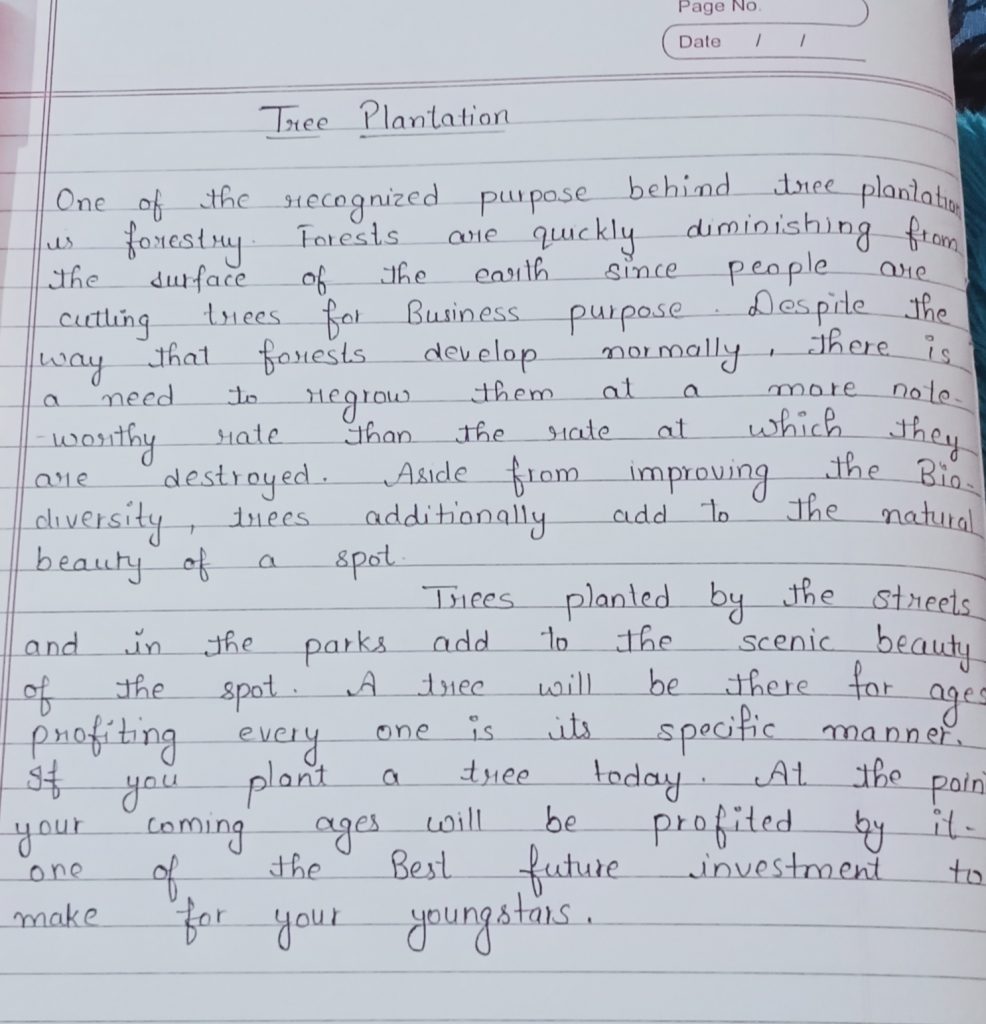 Page No.
Date / /
Tree Plantation
One of the recognized purpose behind tree plantation
is forestry. Forests are quickly diminishing from
the surface of the earth since people are
cutting trees for Business purpose. Despite the
way that forests develop normally, there is
a need to regrow them at a more note-
-worthy rate than the rate at which they
are destroyed. Aside from improving the Bio-
diversity, trees additionally add to the natural
beauty of a spot.
Trees planted by the streets
and in the parks add to the scenic beauty
of the spot. A tree will be there for ages
profiting every one is its specific manner.
If you plant a tree today. At the poin
your coming ages will be profited by it-
one of the Best future investment to
make for your youngstars.